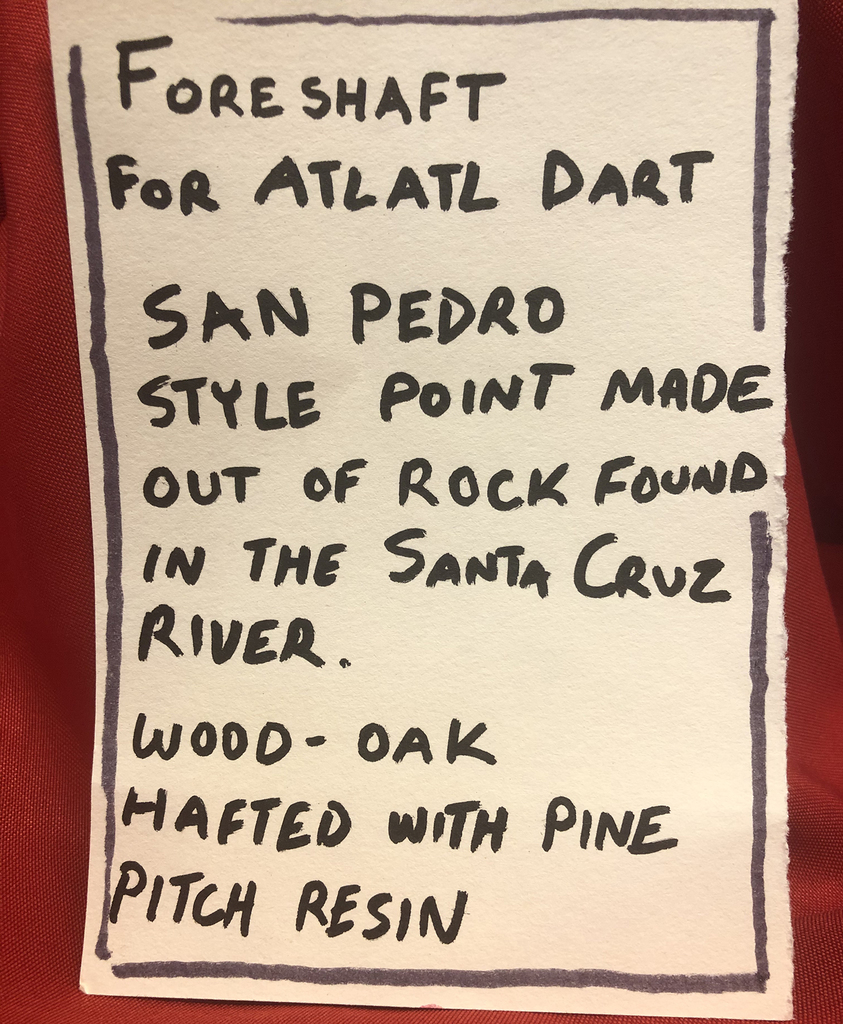 FORESHAFT
FOR ATLATL DART
SAN PEDRO
STYLE POINT MADE
OUT OF ROCK FOUND
IN THE SANTA CRUZ
RIVER.
WOOD - OAK
HAFTED WITH PINE
PITCH RESIN